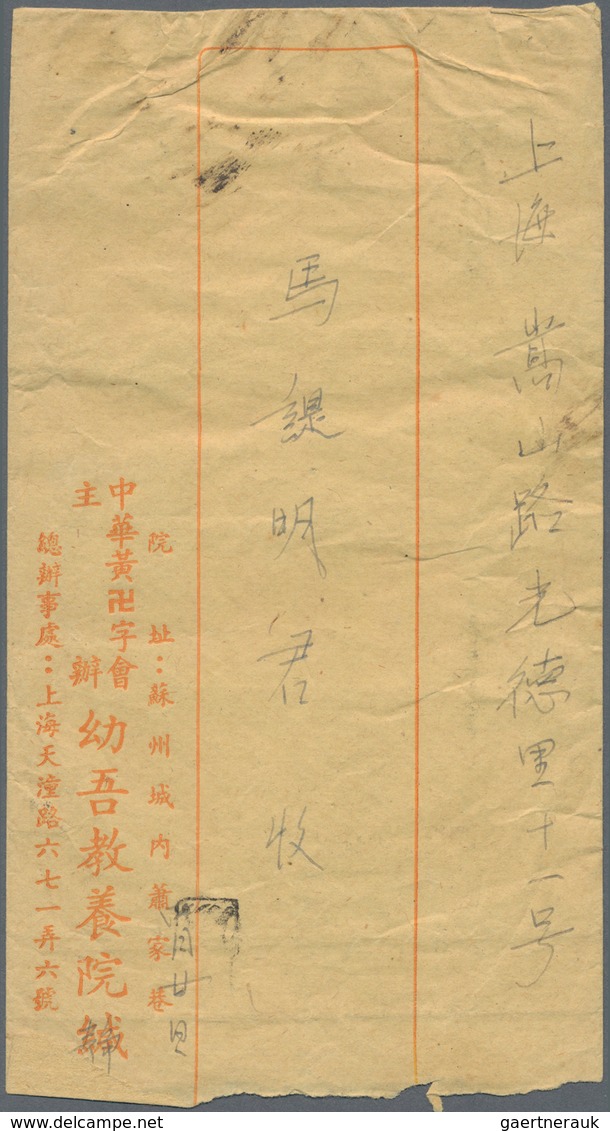 上海 嵩山路光德里十一号
馬諟明君收
院址：蘇州城內蕭家巷
中華黃卍字會主辦
幼吾教養院緘
總辦事處：上海天潼路六七一弄六號
月廿日
gaertnerauk